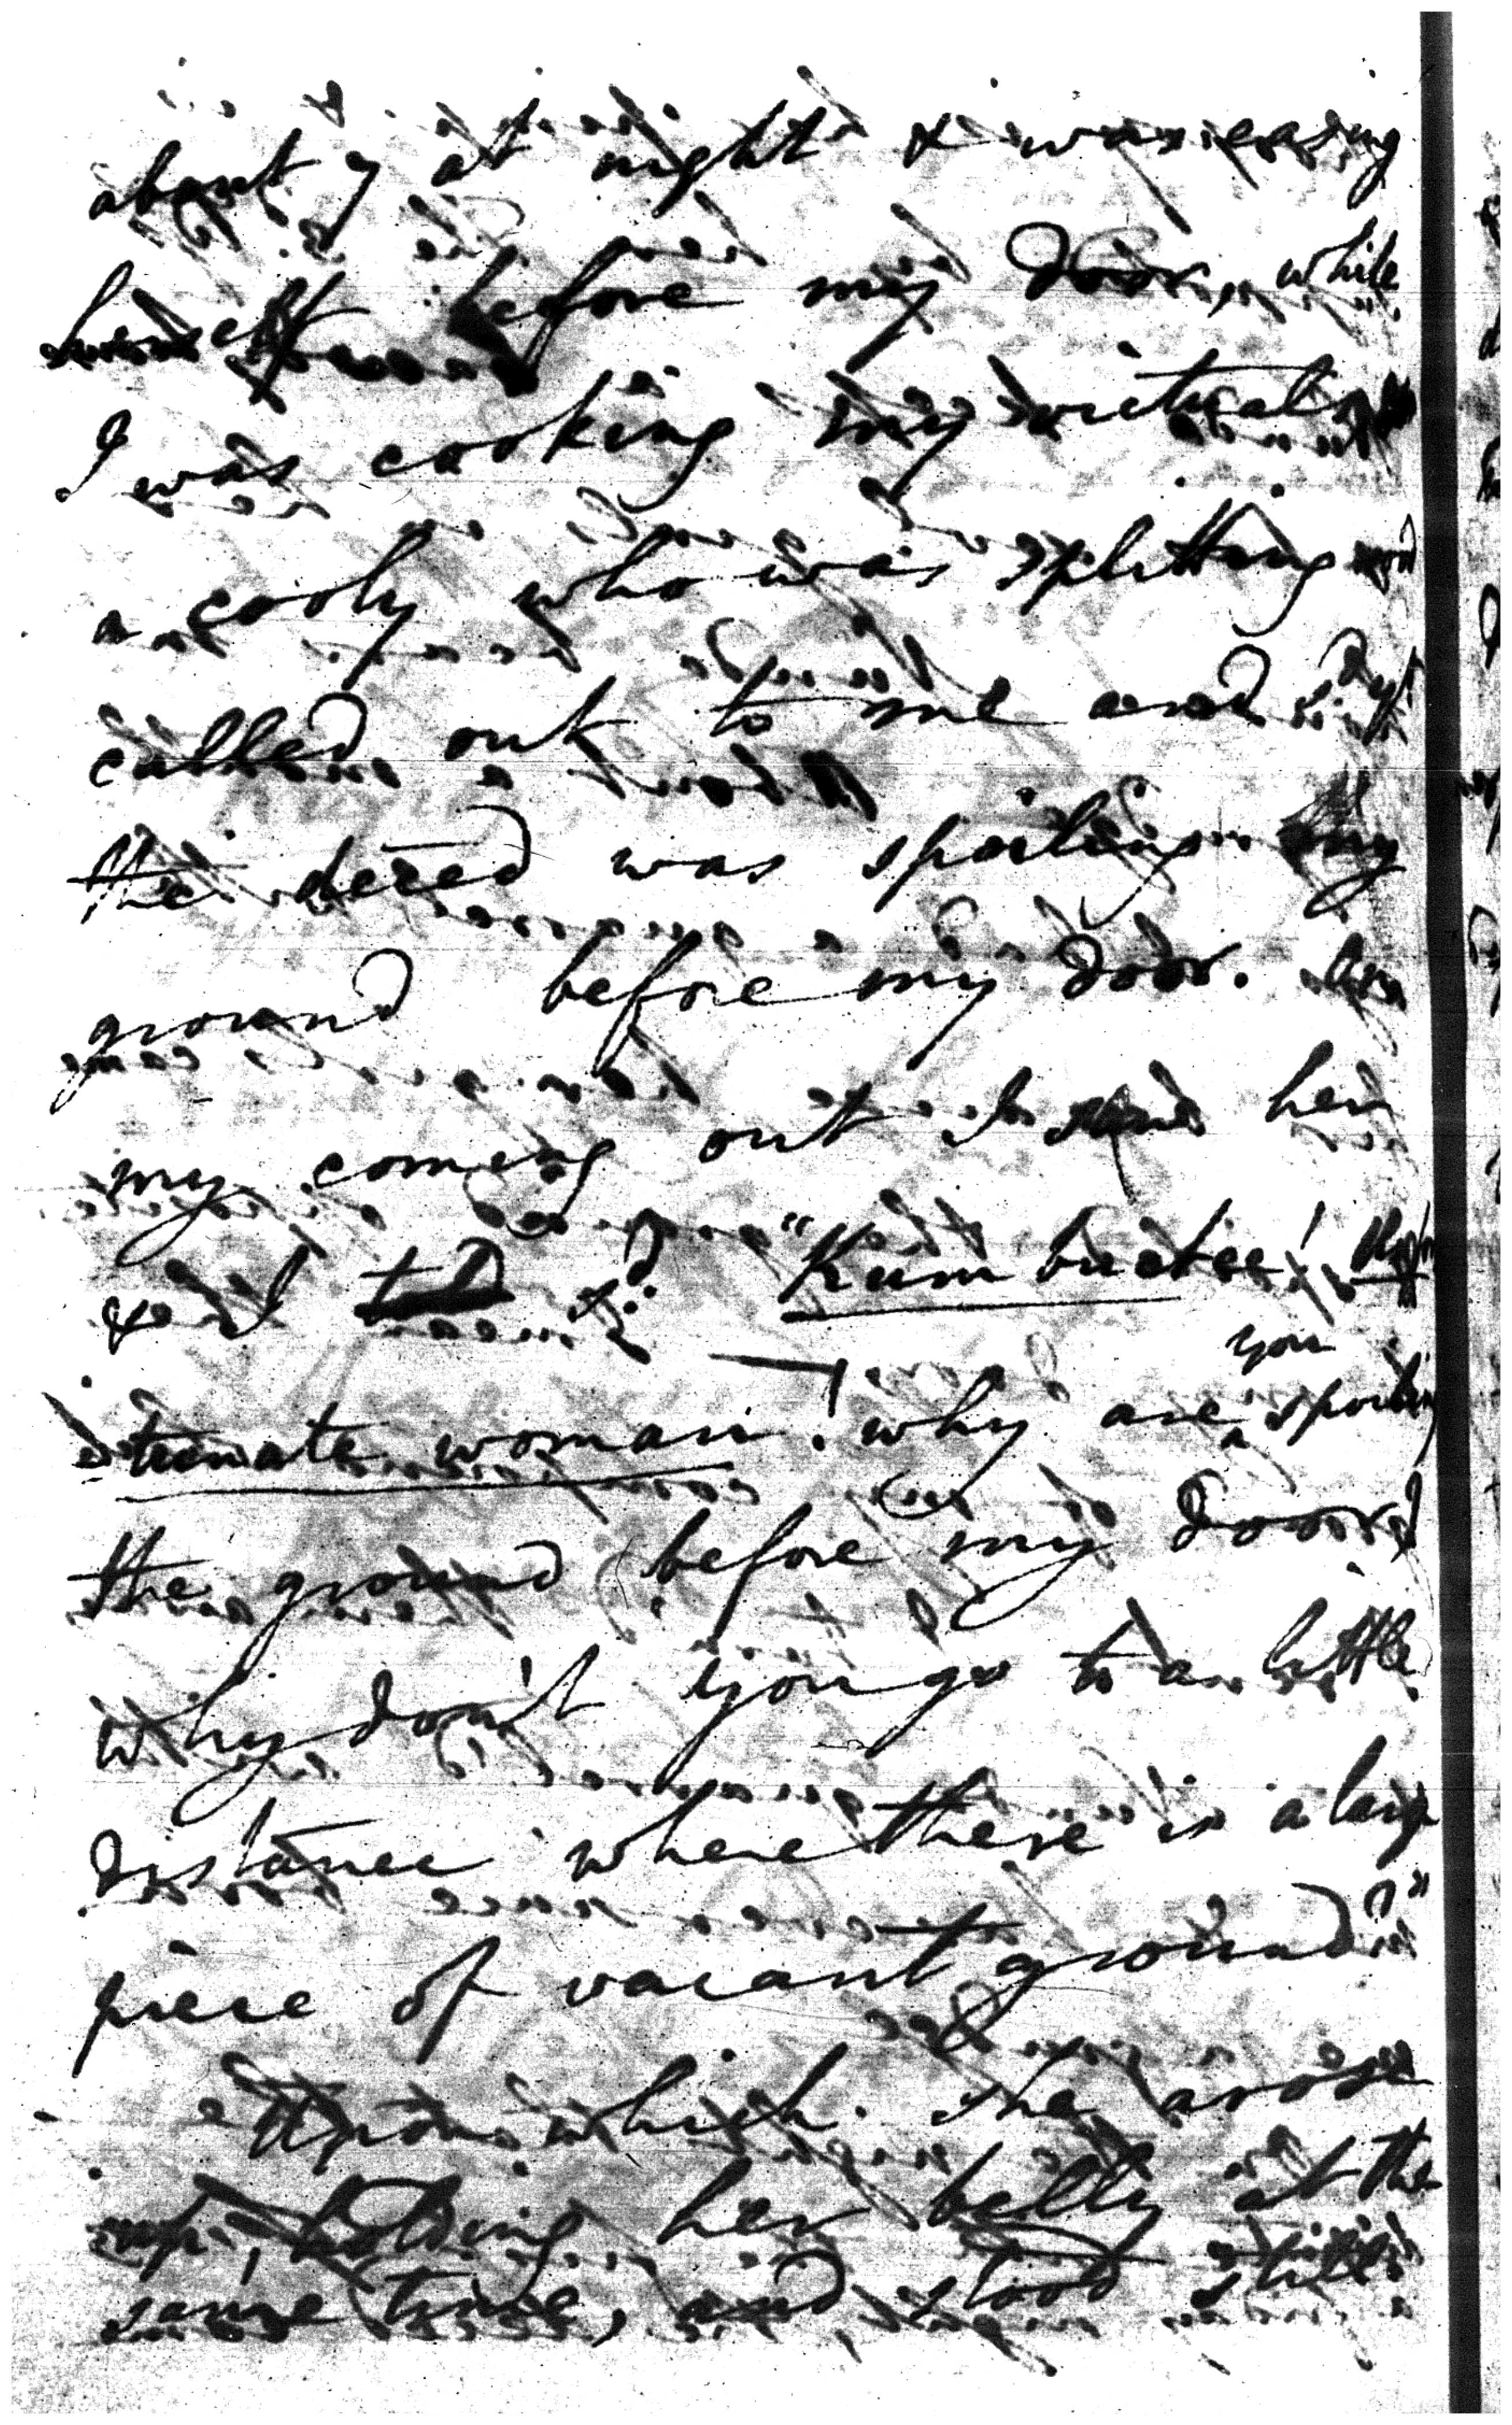 about 7 at night & was easing
herself before my door, while
I was cooking my victuals
a cooly who was splitting
called out to me and sd yt
the deced was spoiling my
ground before my door. On
my coming out I her
& I sd "Kum buctee!
tunate woman! why are you spoiling
the ground before my door?
why don't you go to a little
distance where there is a large
piece of vacant ground?"
Upon which she arose
up, holding her belly at the
same time, and stood still